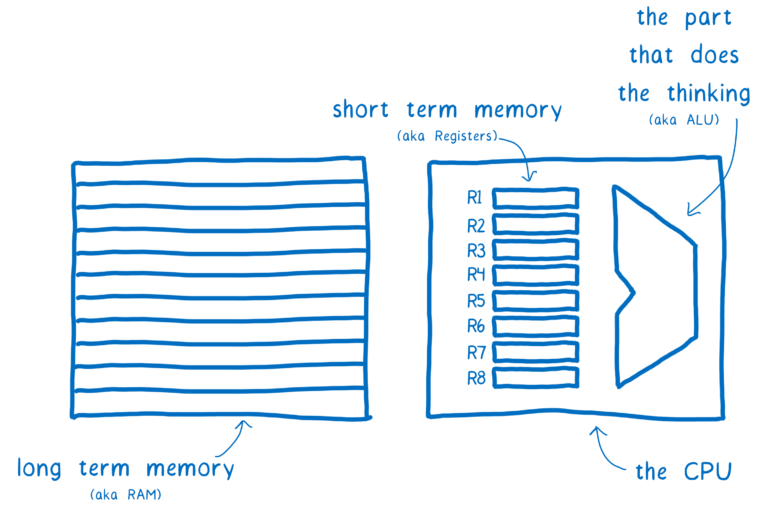 the part
that does
the thinking
(aka ALU)
short term memory
(aka Registers)
R1
R2
R3
R4
R5
R6
R7
R8
long term memory
(aka RAM)
the CPU